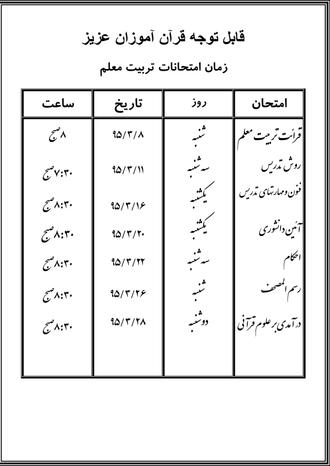 قابل توجه قرآن آموزان عزیز
زمان امتحانات تربیت معلم
امتحان روز تاریخ ساعت
قرائت تربیت معلم شنبه ۹۵/۳/۸ ۸ صبح
روش تدریس سه شنبه ۹۵/۳/۱۱ ۷:۳۰ صبح
فنون و مهارتهای تدریس یکشنبه ۹۵/۳/۱۶ ۸:۳۰ صبح
آئین دانشوری یکشنبه ۹۵/۳/۲۰ ۸:۳۰ صبح
احکام سه شنبه ۹۵/۳/۲۲ ۸:۳۰ صبح
رسم المصحف شنبه ۹۵/۳/۲۶ ۸:۳۰ صبح
درآمدی بر علوم قرآنی دوشنبه ۹۵/۳/۲۸ ۸:۳۰ صبح